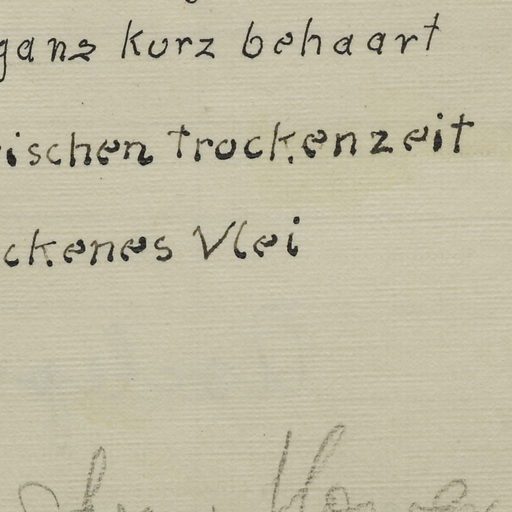 ganz kurz behaart
ischen trockenzeit
ckenes Vlei